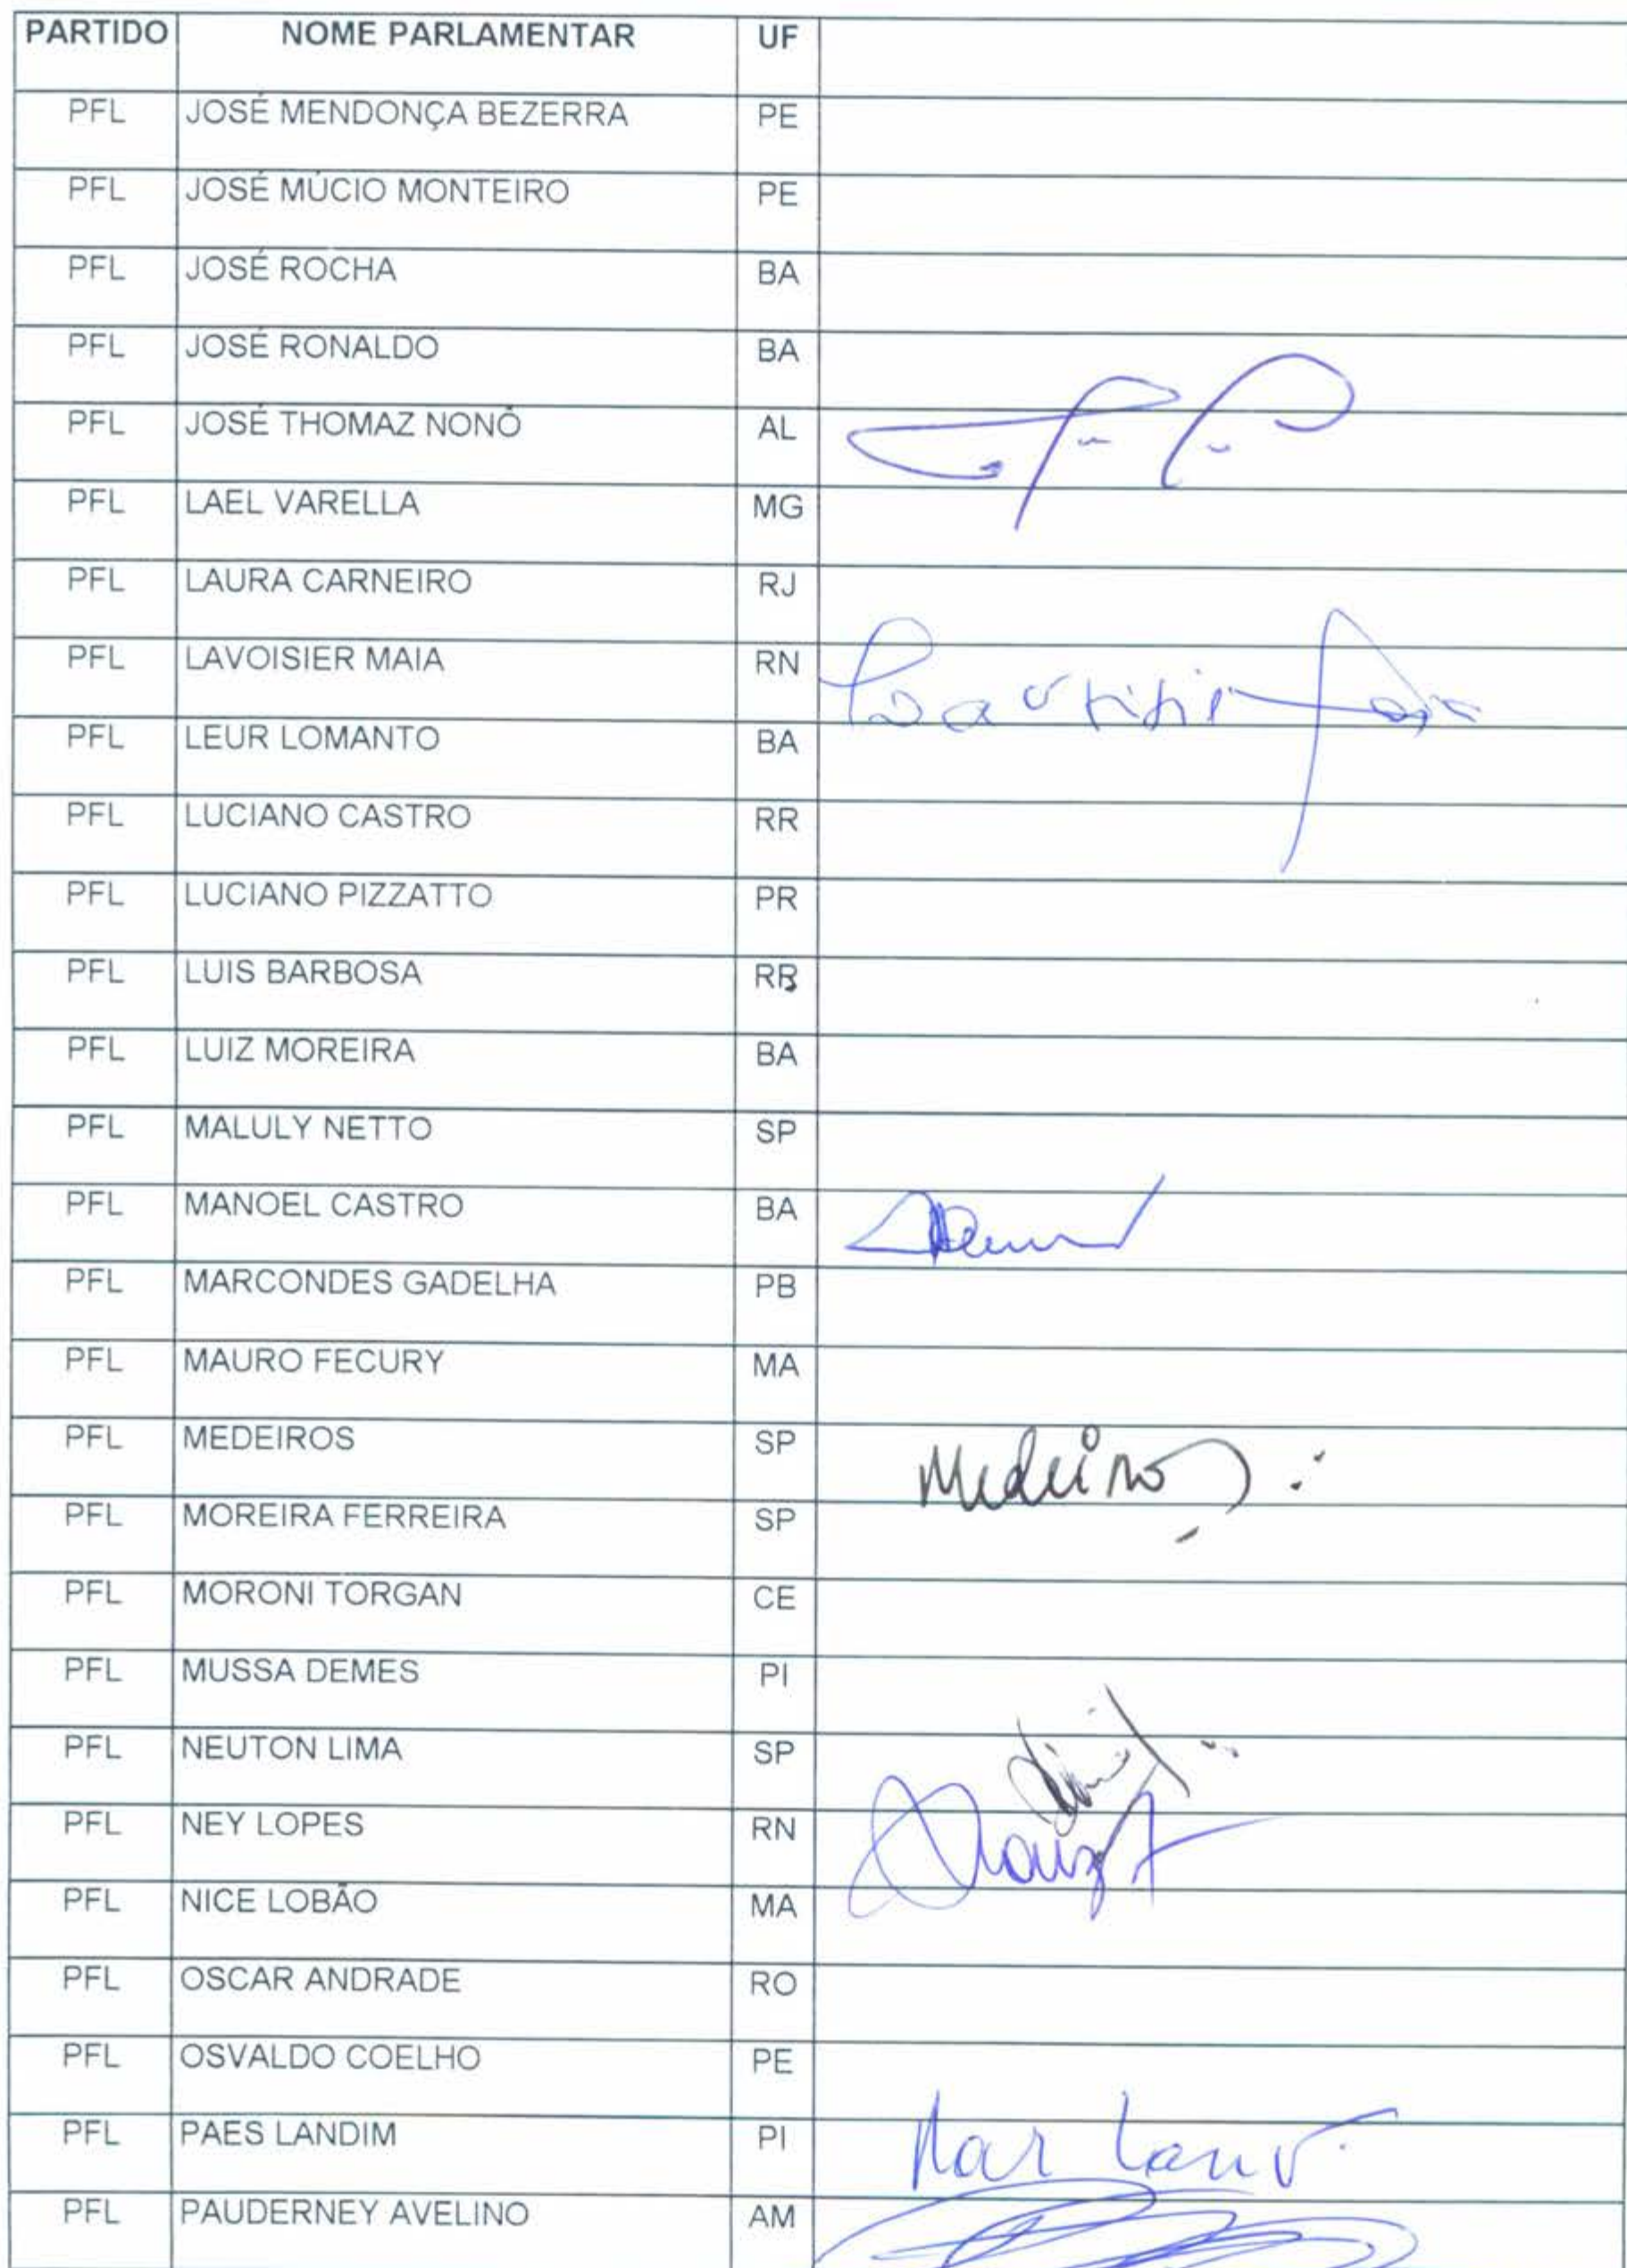 PARTIDO NOME PARLAMENTAR UF
PFL JOSÉ MENDONÇA BEZERRA PE
PFL JOSÉ MÚCIO MONTEIRO PE
PFL JOSÉ ROCHA BA
PFL JOSÉ RONALDO BA
PFL JOSÉ THOMAZ NONÔ AL
PFL LAEL VARELLA MG
PFL LAURA CARNEIRO RJ
PFL LAVOISIER MAIA RN
PFL LEUR LOMANTO BA
PFL LUCIANO CASTRO RR
PFL LUCIANO PIZZATTO PR
PFL LUIS BARBOSA RR
PFL LUIZ MOREIRA BA
PFL MALULY NETTO SP
PFL MANOEL CASTRO BA
PFL MARCONDES GADELHA PB
PFL MAURO FECURY MA
PFL MEDEIROS SP Medeiros
PFL MOREIRA FERREIRA SP
PFL MORONI TORGAN CE
PFL MUSSA DEMES PI
PFL NEUTON LIMA SP
PFL NEY LOPES RN
PFL NICE LOBÃO MA
PFL OSCAR ANDRADE RO
PFL OSVALDO COELHO PE
PFL PAES LANDIM PI
PFL PAUDERNEY AVELINO AM